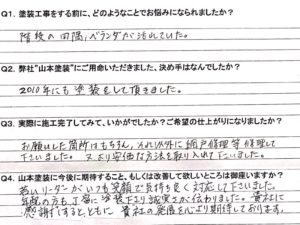 Q1. 塗装工事をする前に、どのようなことでお悩みになられましたか?
階段の田隅、ベランダが汚れていた。
Q2. 弊社“山本塗装”にご用命いただきました、決め手はなんでしたか?
2010年にも塗装をして頂きました。
Q3. 実際に施工完了してみて、いかがでしたか?ご希望の仕上がりになりましたか?
お願いした箇所はもちろん、それ以外に網戸修理等修理して
下さいました。又より安価な方法を取り入れて下さいました。
Q4. 山本塗装に今後に期待すること、もしくは改善して欲しいところは御座いますか?
若いリーダーがいつも笑顔で気持ち良く対応して下さいました。
年配の方も丁寧に塗装下さり誠実さが伝わりました。貴社に
感謝するとともに貴社の発展を心より期待しております。